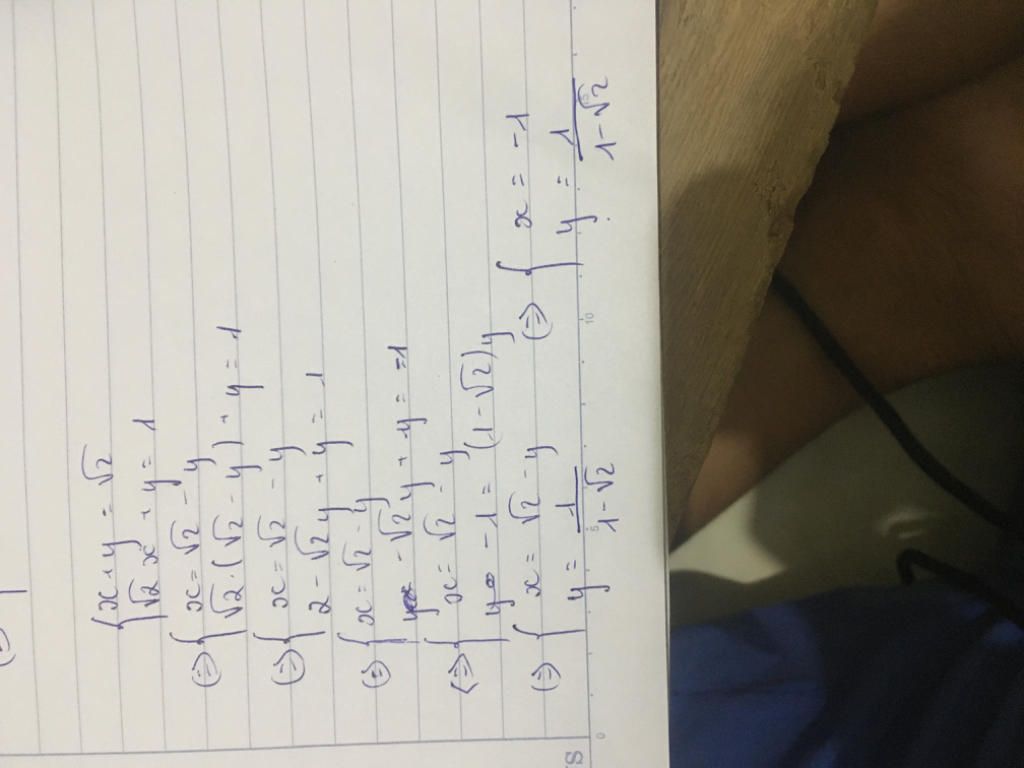 (=)
{ x + y = √2
√2 x + y = 1
(=) { x = √2 - y
√2 . (√2 - y) + y = 1
(=) { x = √2 - y
2 - √2 y + y = 1
(=) { x = √2 - y
- √2 y + y = -1
(=) { x = √2 - y
- 1 = (1 - √2) y
(=) { x = √2 - y
y = 1 / (1 - √2)
(=) { x = -1
y = 1 / (1 - √2)
0 5 10